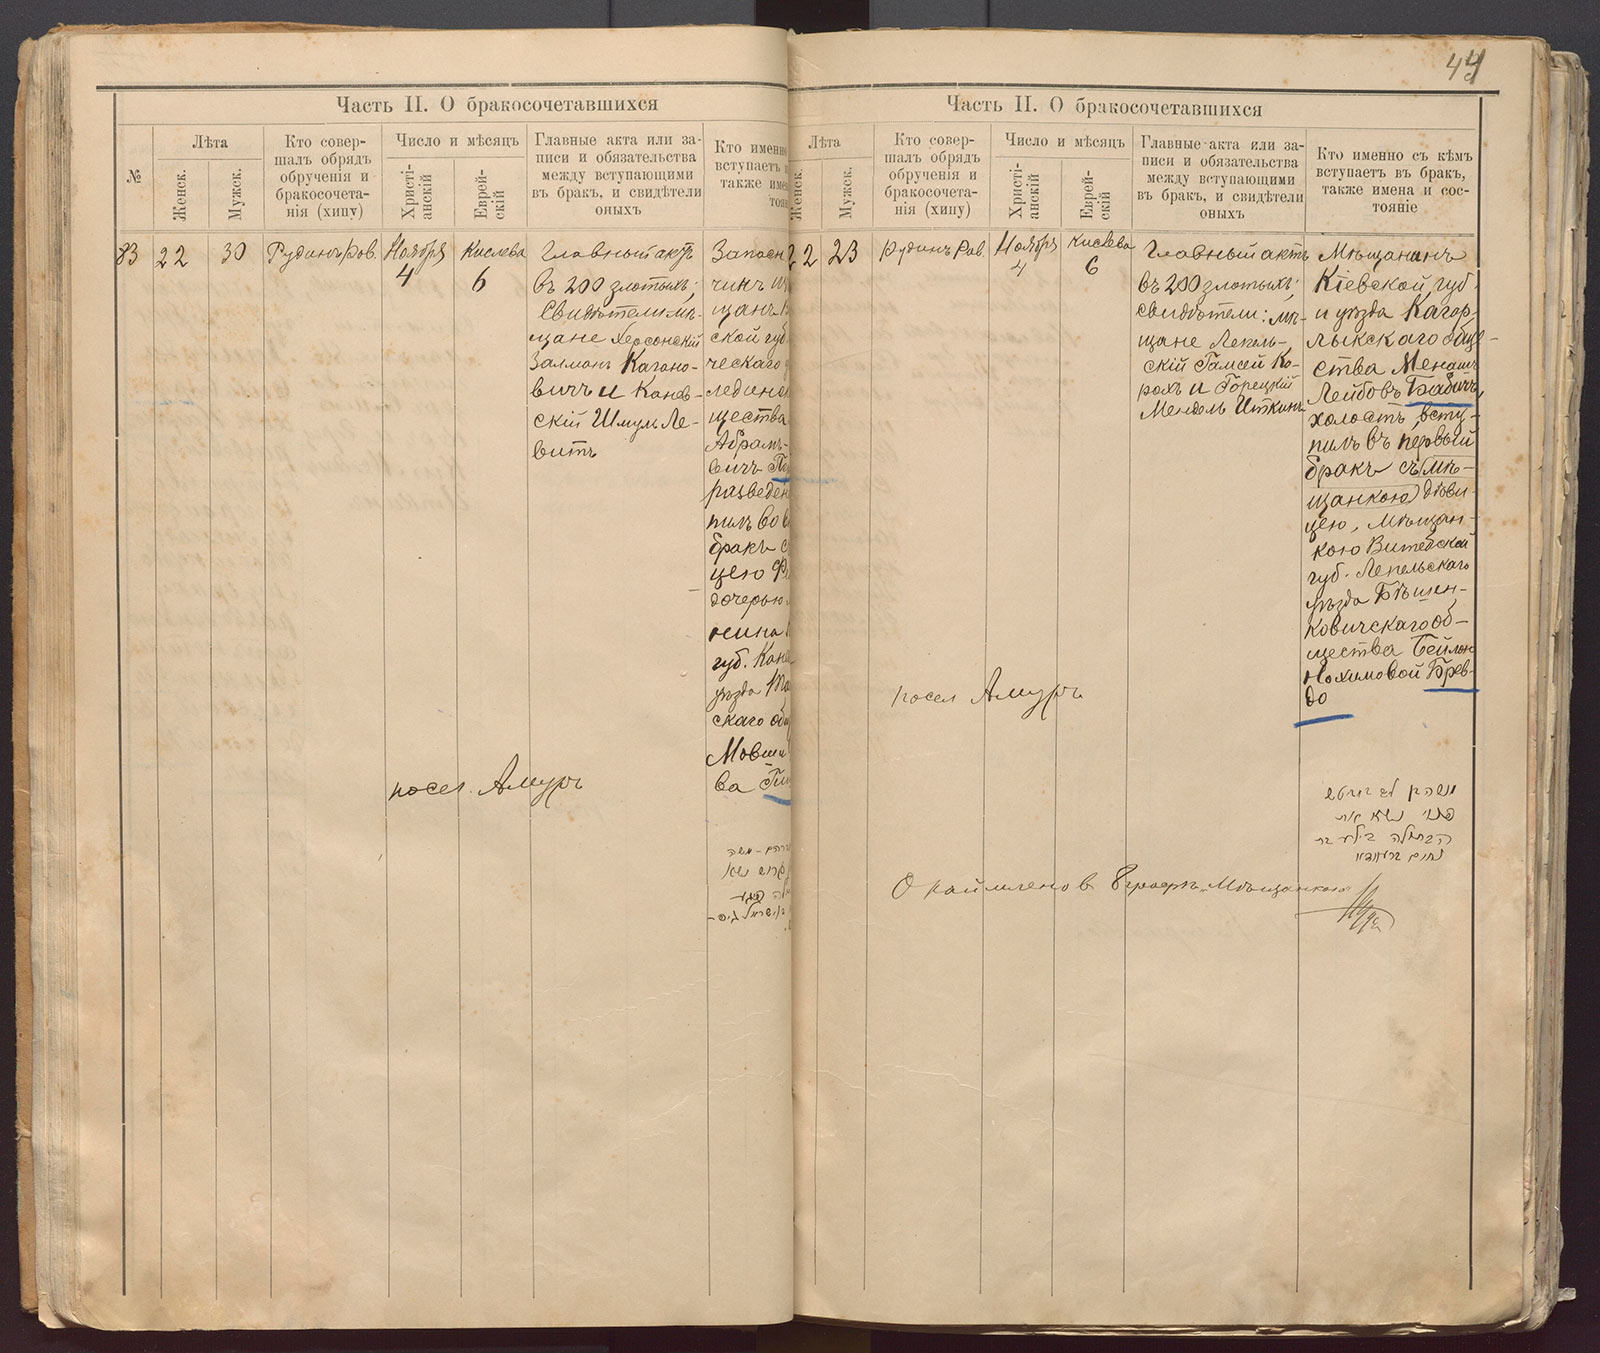 44
Часть II. О бракосочетавшихся
№
Лѣта
Женск.
Мужск.
Кто совер-
шалъ обрядъ
обрученія и
бракосочета-
нія (хипу)
Число и мѣсяцъ
Христі-
анскій
Еврей-
скій
Главные акта или за-
писи и обязательства
между вступающими
въ бракъ, и свидѣтели
оныхъ
Кто именно
вступаетъ
также имe
тояні
83
22
30
Рудинъ Рав.
Ноября
4
Кислева
6
Главный актъ
въ 200 злотыхъ;
Свидѣтели мѣ-
щане Херсонскій
Залманъ Кагано-
вичъ и Канев-
скій Шмуль Ле-
витъ
Запасн
чинъ
щанъ
ской губ
ческаго
щества
Абрамъ-
вичъ
разведен
пилъ во
бракъ с
цею
дочерью
губ. Кан
уѣзда
скаго об
Мовши
ва
посел. Амуръ
Часть II. О бракосочетавшихся
Лѣта
Женск.
Мужск.
Кто совер-
шалъ обрядъ
обрученія и
бракосочета-
нія (хипу)
Число и мѣсяцъ
Христі-
анскій
Еврей-
скій
Главные акта или за-
писи и обязательства
между вступающими
въ бракъ, и свидѣтели
оныхъ
Кто именно съ кѣмъ
вступаетъ въ бракъ,
также имена и сос-
тояніе
22
23
Рудинъ Рав.
Ноября
4
Кислева
6
Главный актъ
въ 200 злотыхъ;
свидѣтели: мѣ-
щане Лепель-
скій Гамсей Ко-
рохъ и Горецкій
Мендель Иткинъ
Мѣщанинъ
Кіевской губ.
и уѣзда Кагар-
лыкскаго обще-
ства Менаш
Лейбовъ Бабичъ,
холостъ, всту-
пилъ въ первый
бракъ съ (мѣ-
щанкою) дѣви-
цею, мѣщан-
кою Витебской
губ. Лепельскаго
уѣзда Бѣшен-
ковичскаго об-
щества Бейлею
Нохимовой Брев-
до
посел Амуръ
מנשה בן
נשא את
הבתולה בילע בת
נחום ברעוודא